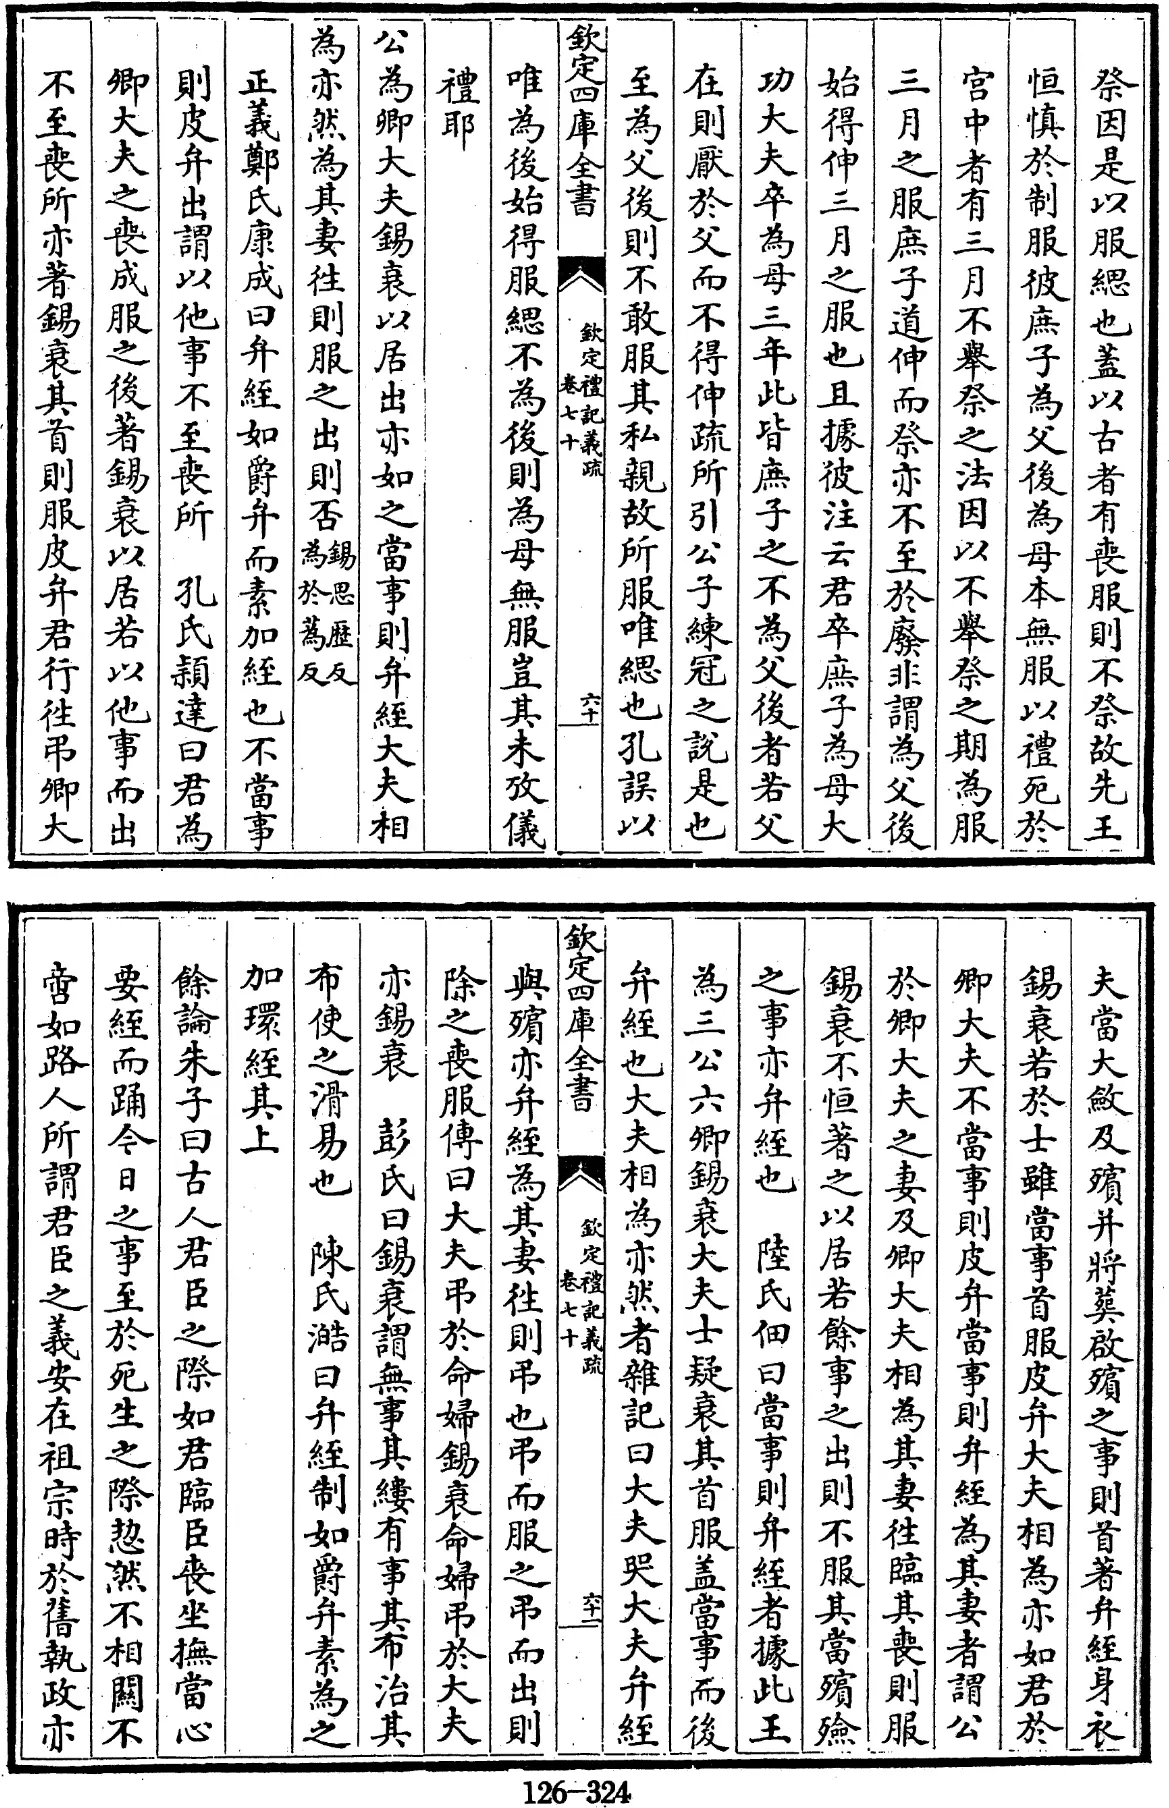 祭因是以服緦也蓋以古者有喪服則不祭故先王
恒慎於制服彼庶子為父後為母本無服以禮死於
宫中者有三月不舉祭之法因以不舉祭之期為服
三月之服庶子道伸而祭亦不至於廢非謂為父後
始得伸三月之服也且據彼注云君卒庶子為母大
功大夫卒為母三年此皆庶子之不為父後者若父
在則厭於父而不得伸疏所引公子練冠之說是也
至為父後則不敢服其私親故所服唯緦也孔誤以
欽定四庫全書
欽定禮記義疏
卷七十
六十
唯為後始得服緦不為後則為母無服豈其未攷儀
禮耶
公為卿大夫錫衰以居出亦如之當事則弁絰大夫相
為亦然為其妻往則服之出則否錫思歷反
為於蒍反
正義鄭氏康成曰弁絰如爵弁而素加絰也不當事
則皮弁出謂以他事不至喪所　孔氏穎達曰君為
卿大夫之喪成服之後著錫衰以居若以他事而出
不至喪所亦著錫衰其首則服皮弁君行往弔卿大
夫當大斂及殯并將葬啟殯之事則首著弁絰身衣
錫衰若於士雖當事首服皮弁大夫相為亦如君於
卿大夫不當事則皮弁當事則弁絰為其妻者謂公
於卿大夫之妻及卿大夫相為其妻往臨其喪則服
錫衰不恒著之以居若餘事之出則不服其當殯殮
之事亦弁絰也　陸氏佃曰當事則弁絰者據此王
為三公六卿錫衰大夫士疑衰其首服蓋當事而後
弁絰也大夫相為亦然者雜記曰大夫哭大夫弁絰
欽定四庫全書
欽定禮記義疏
卷七十
六十一
與殯亦弁絰為其妻往則弔也弔而服之弔而出則
除之喪服傳曰大夫弔於命婦錫衰命婦弔於大夫
亦錫衰　彭氏曰錫衰謂無事其縷有事其布治其
布使之滑易也　陳氏澔曰弁絰制如爵弁素為之
加環絰其上
餘論朱子曰古人君臣之際如君臨臣喪坐撫當心
要絰而踊今日之事至於死生之際恝然不相關不
啻如路人所謂君臣之義安在祖宗時於舊執政亦
126-324